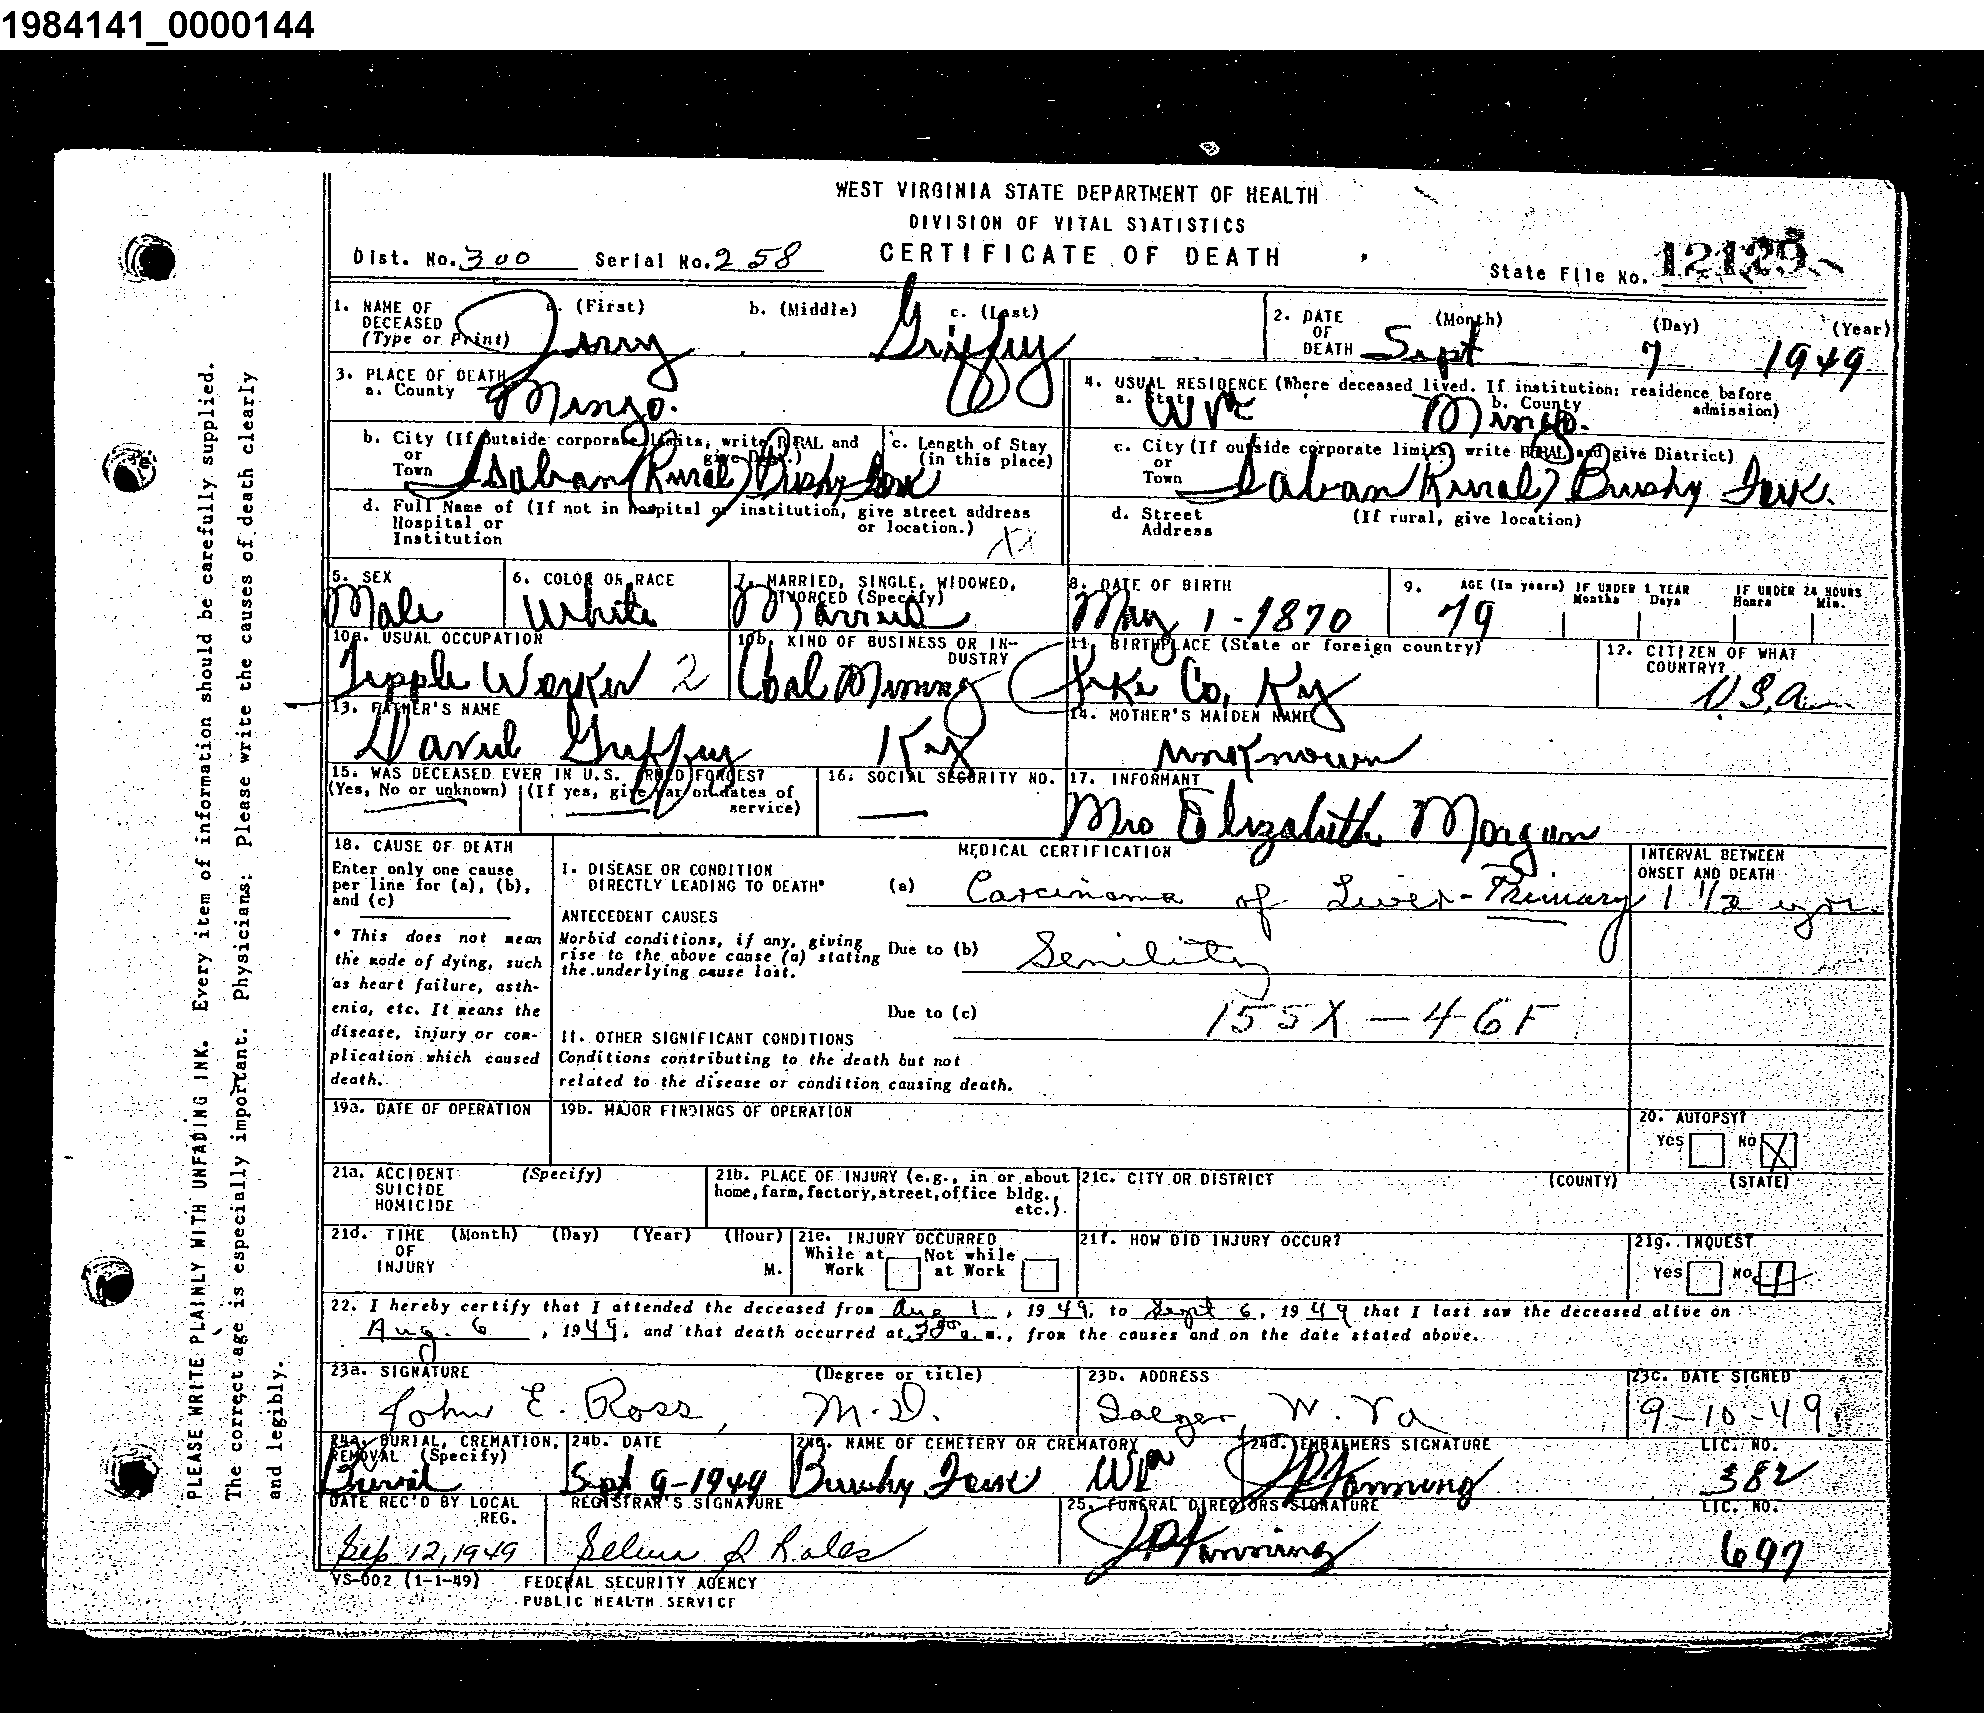 1984141_0000144
WEST VIRGINIA STATE DEPARTMENT OF HEALTH
DIVISION OF VITAL STATISTICS
CERTIFICATE OF DEATH
Dist. No. 300 Serial No. 258
State File No. 12125
1. NAME OF DECEASED (Type or Print) a. (First) b. (Middle) c. (Last)
Jerry Griffey
2. DATE OF DEATH (Month) (Day) (Year)
Sept 7 1949
3. PLACE OF DEATH
a. County Mingo.
4. USUAL RESIDENCE (Where deceased lived. If institution: residence before admission)
a. State W Va b. County Mingo.
b. City (If outside corporate limits, write RURAL and give Dist.) or Town
Isaban (Rural) Brushy Fork
c. Length of Stay (in this place)
c. City (If outside corporate limits, write RURAL and give District) or Town
Isaban (Rural) Brushy Fork.
d. Full Name of (If not in hospital or institution, give street address or location.) Hospital or Institution
d. Street Address (If rural, give location)
5. SEX Male
6. COLOR OR RACE White
7. MARRIED, SINGLE, WIDOWED, DIVORCED (Specify) Married
8. DATE OF BIRTH May 1-1870
9. AGE (In years) 79 IF UNDER 1 YEAR Months Days IF UNDER 24 HOURS Hours Min.
10a. USUAL OCCUPATION Tipple Worker 2
10b. KIND OF BUSINESS OR INDUSTRY Coal Mining
11. BIRTHPLACE (State or foreign country) Pike Co, Ky
12. CITIZEN OF WHAT COUNTRY? U.S.a
13. FATHER'S NAME David Griffey Ky
14. MOTHER'S MAIDEN NAME unknown
15. WAS DECEASED EVER IN U.S. ARMED FORCES?
(Yes, No or unknown) (If yes, give war or dates of service)
16. SOCIAL SECURITY NO. —
17. INFORMANT
Mrs Elizabeth Morgan
18. CAUSE OF DEATH
Enter only one cause per line for (a), (b), and (c)
MEDICAL CERTIFICATION
INTERVAL BETWEEN ONSET AND DEATH
I. DISEASE OR CONDITION DIRECTLY LEADING TO DEATH* (a) Carcinoma of Liver - Primary 1 1/2 yr
* This does not mean the mode of dying, such as heart failure, asthenia, etc. It means the disease, injury or complication which caused death.
ANTECEDENT CAUSES
Morbid conditions, if any, giving rise to the above cause (a) stating the underlying cause last.
Due to (b) Senility
Due to (c) 155X - 46F
II. OTHER SIGNIFICANT CONDITIONS
Conditions contributing to the death but not related to the disease or condition causing death.
19a. DATE OF OPERATION
19b. MAJOR FINDINGS OF OPERATION
20. AUTOPSY?
Yes No X
21a. ACCIDENT SUICIDE HOMICIDE (Specify)
21b. PLACE OF INJURY (e.g., in or about home, farm, factory, street, office bldg., etc.).
21c. CITY OR DISTRICT (COUNTY) (STATE)
21d. TIME OF INJURY (Month) (Day) (Year) (Hour) M.
21e. INJURY OCCURRED
While at Work Not while at Work
21f. HOW DID INJURY OCCUR?
21g. INQUEST
Yes No
22. I hereby certify that I attended the deceased from Aug 1, 1949, to Sept 6, 1949 that I last saw the deceased alive on
Aug. 6, 1949, and that death occurred at 3 30 a. m., from the causes and on the date stated above.
23a. SIGNATURE (Degree or title)
John E. Ross, M.D.
23b. ADDRESS Iaeger, W. Va
23c. DATE SIGNED 9-10-49
24a. BURIAL, CREMATION, REMOVAL (Specify) Burial
24b. DATE Sept 9-1949
24c. NAME OF CEMETERY OR CREMATORY Brushy Fork W Va
24d. EMBALMERS SIGNATURE LIC. NO. 382
DATE REC'D BY LOCAL REG. Sep 12, 1949
REGISTRAR'S SIGNATURE
25. FUNERAL DIRECTORS SIGNATURE LIC. NO. 697
VS-002 (1-1-49) FEDERAL SECURITY AGENCY
PUBLIC HEALTH SERVICE
PLEASE WRITE PLAINLY WITH UNFADING INK. Every item of information should be carefully supplied.
The correct age is especially important. Physicians: Please write the causes of death clearly
and legibly.